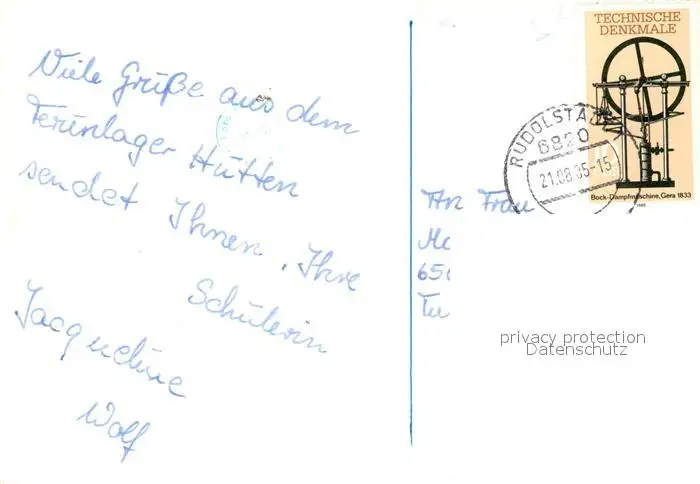 Viele Grüße aus dem
Ferienlager Hütten
sendet Ihnen, Ihre
Schülerin
Jacqueline
Wolf
TECHNISCHE
DENKMALE
Bock-Dampfmaschine, Gera 1833
1985
RUDOLSTADT
6820
21.08.85-15
An Frau
privacy protection
Datenschutz